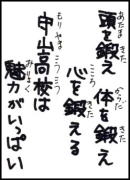 あたま きた
頭を鍛え
からだ きた
体を鍛え
こころ きた
心を鍛える
こうこう
中山高校は
みりょく
魅力がいっぱい